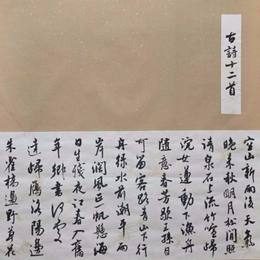 古詩十二首
空山新雨後天氣
晚來秋明月松間照
清泉石上流竹喧歸
浣女蓮動下漁舟
隨意春芳歇王孫自
可留客路青山下行
舟綠水前潮平兩
岸闊風正一帆懸海
日生殘夜江春入舊
年鄉書何處
達歸雁洛陽邊
朱雀橋邊野草花